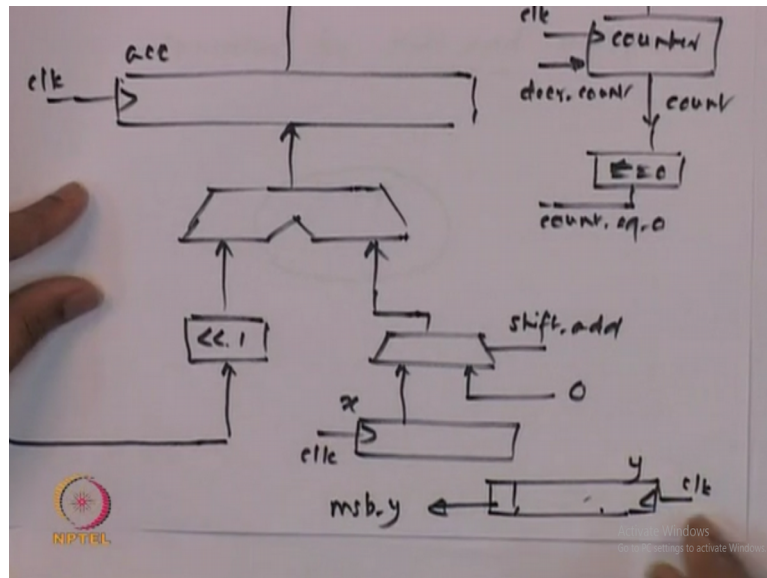 clk
counter
acc
clk
decr.count
count
= = 0
count.eq.0
<<.1
shift.add
0
x
clk
y
clk
msb.y
NPTEL
Activate Windows
Go to PC settings to activate Windows.